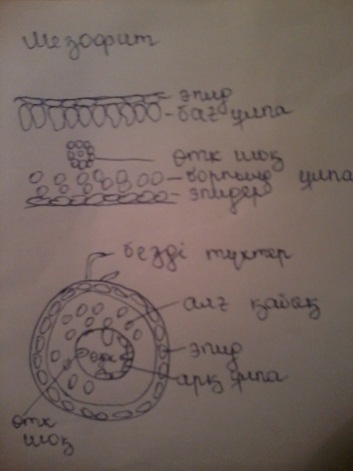 Мезофит
эпид
бағ ұлпа
өтк шоқ
борпылд ұлпа
эпидер
безді түктер
алғ қабық
эпид
арқ ұлпа
өтк
шоқ